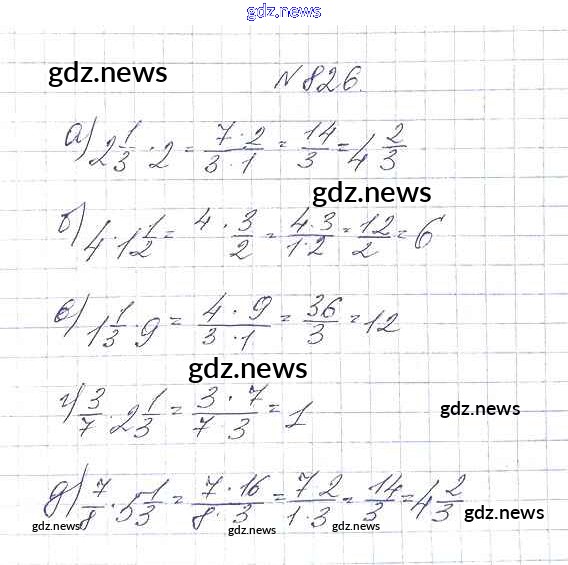 gdz.news
gdz.news
№826.
а) 2 1/3 · 2 = (7 · 2)/(3 · 1) = 14/3 = 4 2/3
gdz.news
б) 4 · 1 1/2 = 4 · 3/2 = (4 · 3)/(1 · 2) = 12/2 = 6
в) 1 1/3 · 9 = (4 · 9)/(3 · 1) = 36/3 = 12
gdz.news
г) 3/7 · 2 1/3 = (3 · 7)/(7 3) = 1
gdz.news
д) 7/8 · 5 1/3 = (7 · 16)/(8 · 3) = (7 2)/(1 · 3) = 14/3 = 4 2/3
gdz.news
gdz.news
gdz.news
gdz.news